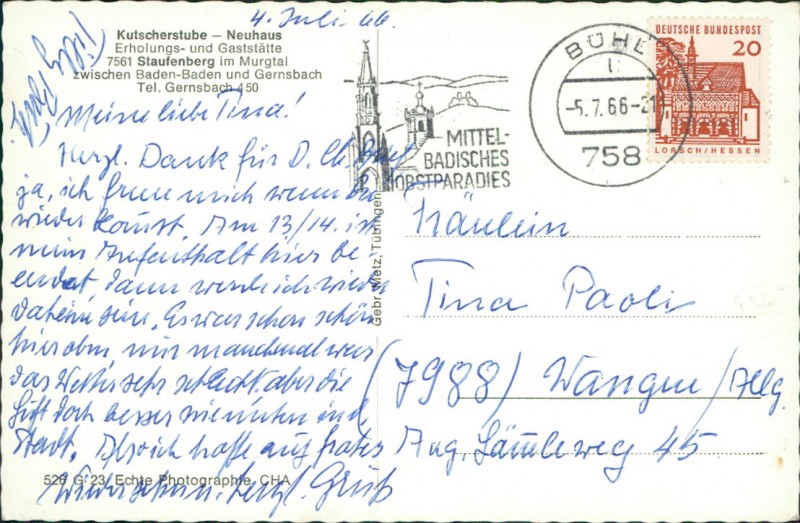 4. Juli 66.
Kutscherstube – Neuhaus
Erholungs- und Gaststätte
7561 Staufenberg im Murgtal
zwischen Baden-Baden und Gernsbach
Tel. Gernsbach 450
Meine liebe Tina!
Herzl. Dank für D. lb. Brief
ja, ich freue mich wenn Du
wieder kommst. Am 13/14. ist
mein Aufenthalt hier be-
endet, dann werde ich wieder
daheim sein. Es war schon schön
hier oben nur manchmal war
das Wetter sehr schlecht aber die
Luft doch besser wie unten in d
Stadt. Also ich hoffe auf frohes
Wiedersehen u. herzl. Grüß
526 G 23/ Echte Photographie, CHA
Gebr. Metz, Tübingen
MITTEL-
BADISCHES
OBSTPARADIES
BÜHL
-5.7.66-21
758
DEUTSCHE BUNDESPOST
20
LORSCH/HESSEN
Fräulein
Tina Paoli
(7988) Wangen/Allg.
Aug. Lämleweg 45